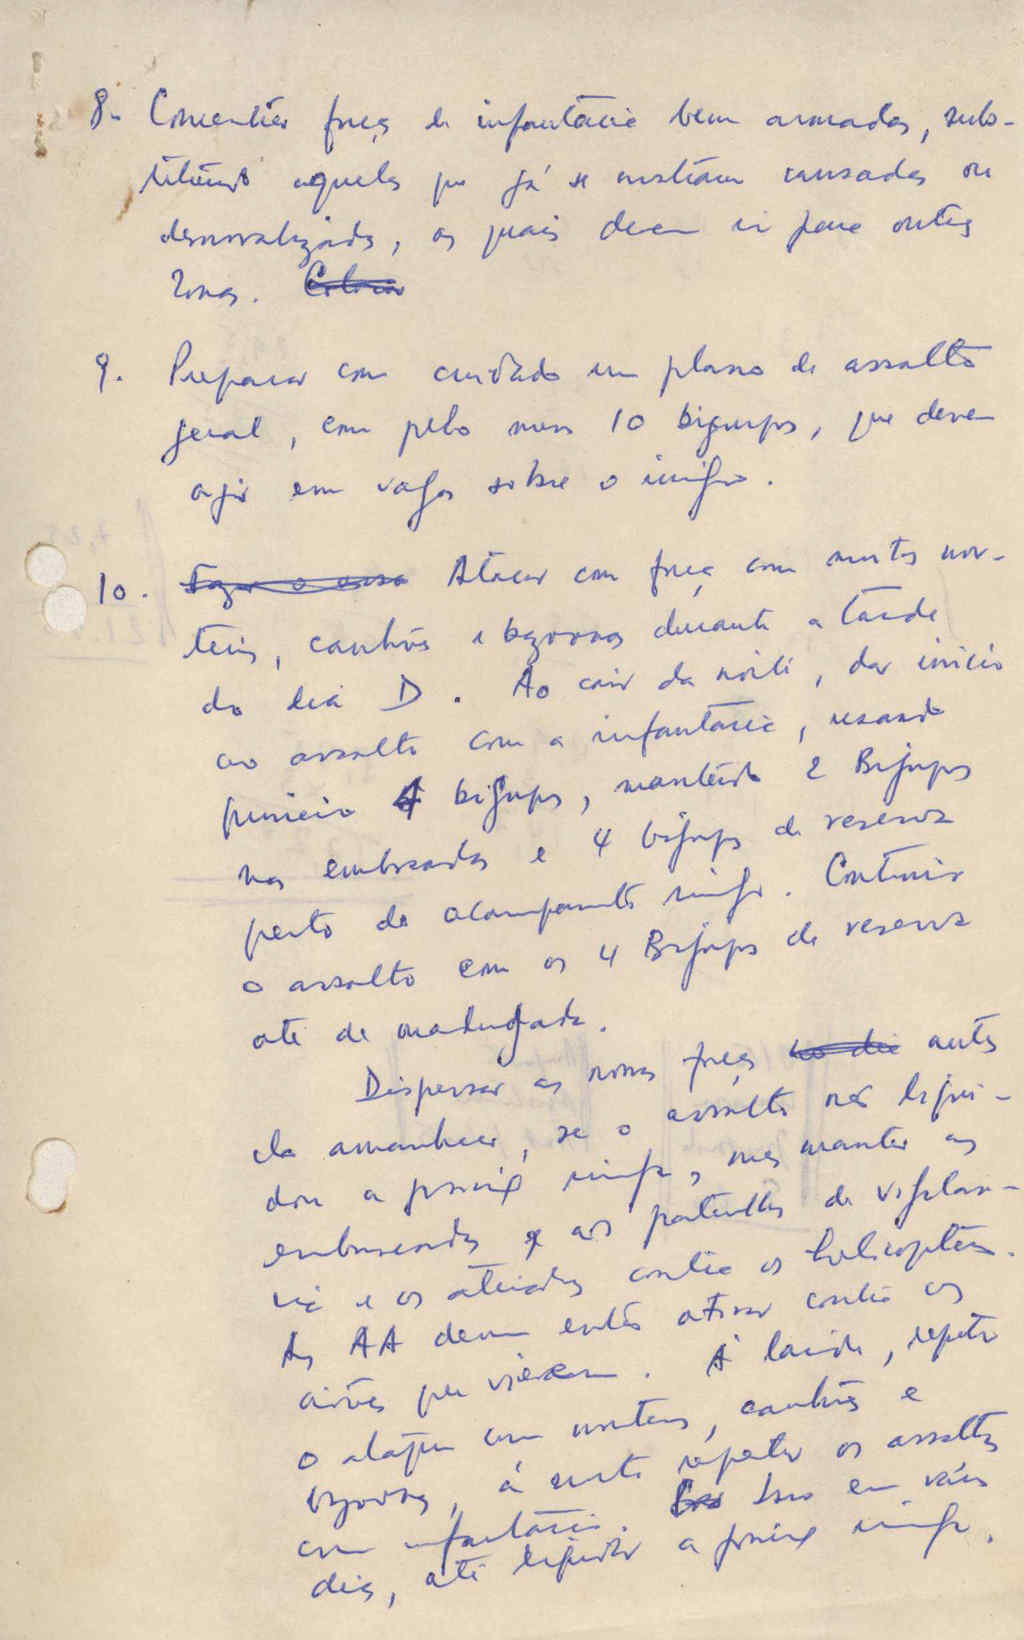 8. Concentrar forças de infantaria bem armadas, subs-
tituindo aquelas que já se mostram cansadas ou
desmoralizadas, as quais devem ir para outras
zonas. Colocar
9. Preparar com cuidado um plano de assalto
geral, com pelo menos 10 bigrupos, que devem
agir em vagas sobre o inimigo.
10. Atacar com força com muitos mor-
teiros, canhões e bazookas durante a tarde
do dia D. Ao cair da noite, dar início
ao assalto com a infantaria, usando
primeiro 4 bigrupos, mantendo 2 Bigrupos
nas emboscadas e 4 bigrupos de reserva
perto do acampamento inimigo. Continuar
o assalto com os 4 Bigrupos de reserva
até de madrugada.
Dispersar as nossas forças no dia antes
do amanhecer, se o assalto não liqui-
dou a posição inimiga, mas manter as
emboscadas e as patrulhas de vigilân-
cia e os ataques contra os helicópteros.
As AA devem então atirar contra os
aviões que vierem. À tarde, repetir
o ataque com morteiros, canhões e
bazookas, à noite repetir os assaltos
com infantaria. Isso em vários
dias, até liquidar a posição inimiga.